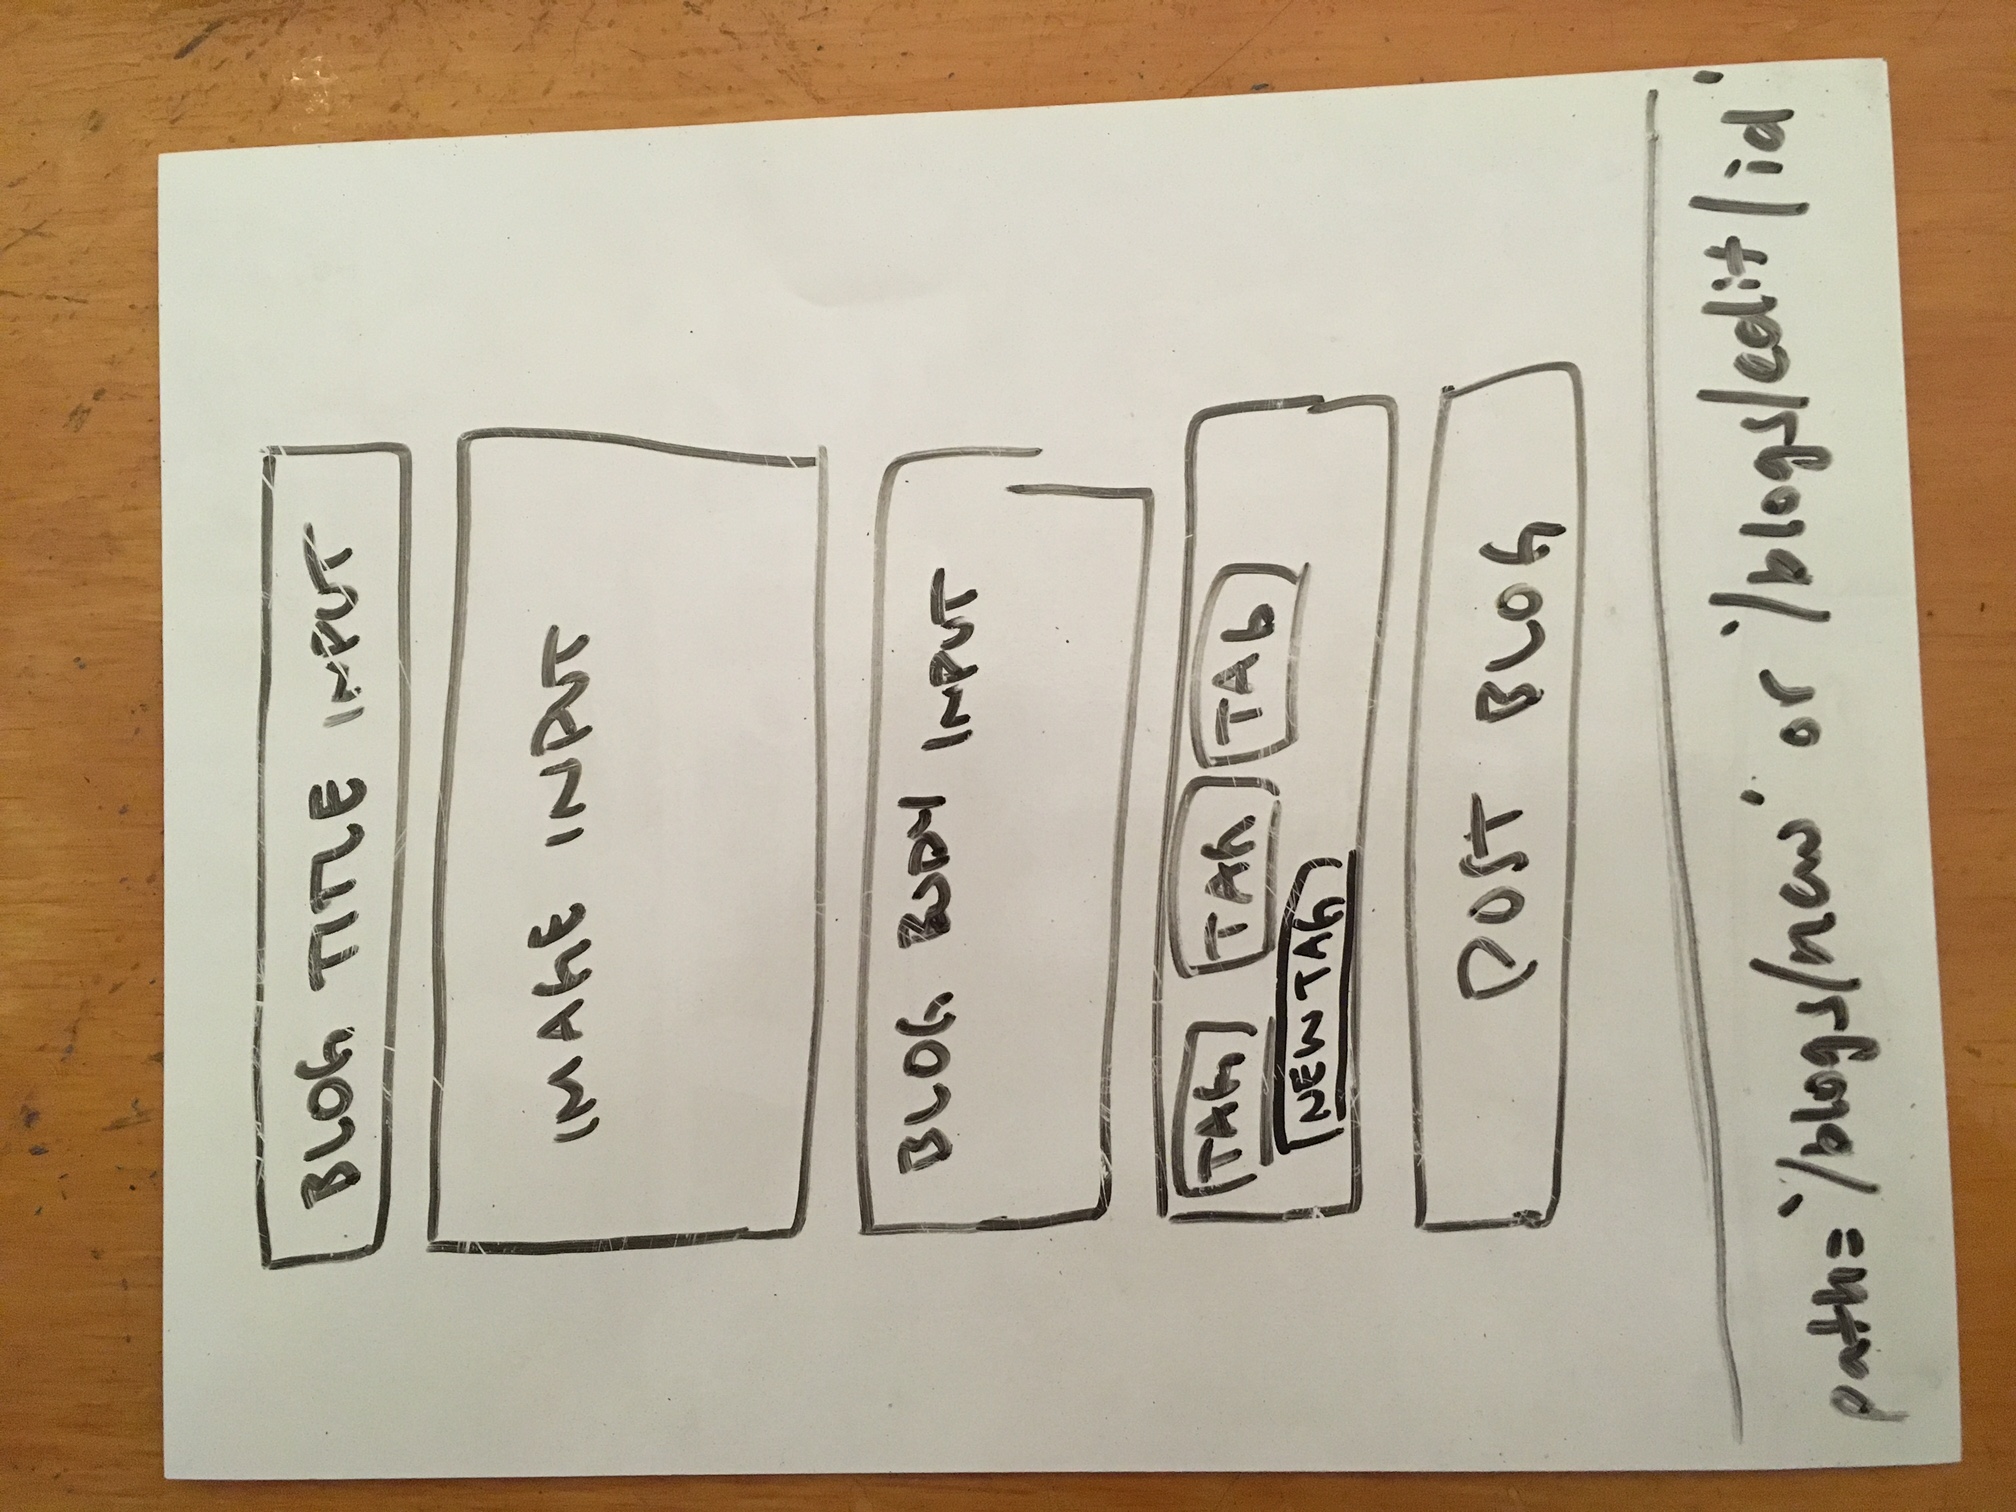 BLOG TITLE INPUT
IMAGE INPUT
BLOG BODY INPUT
TAG TAG TAG
NEW TAG
POST BLOG
path='/blogs/new' or '/blogs/edit/id'